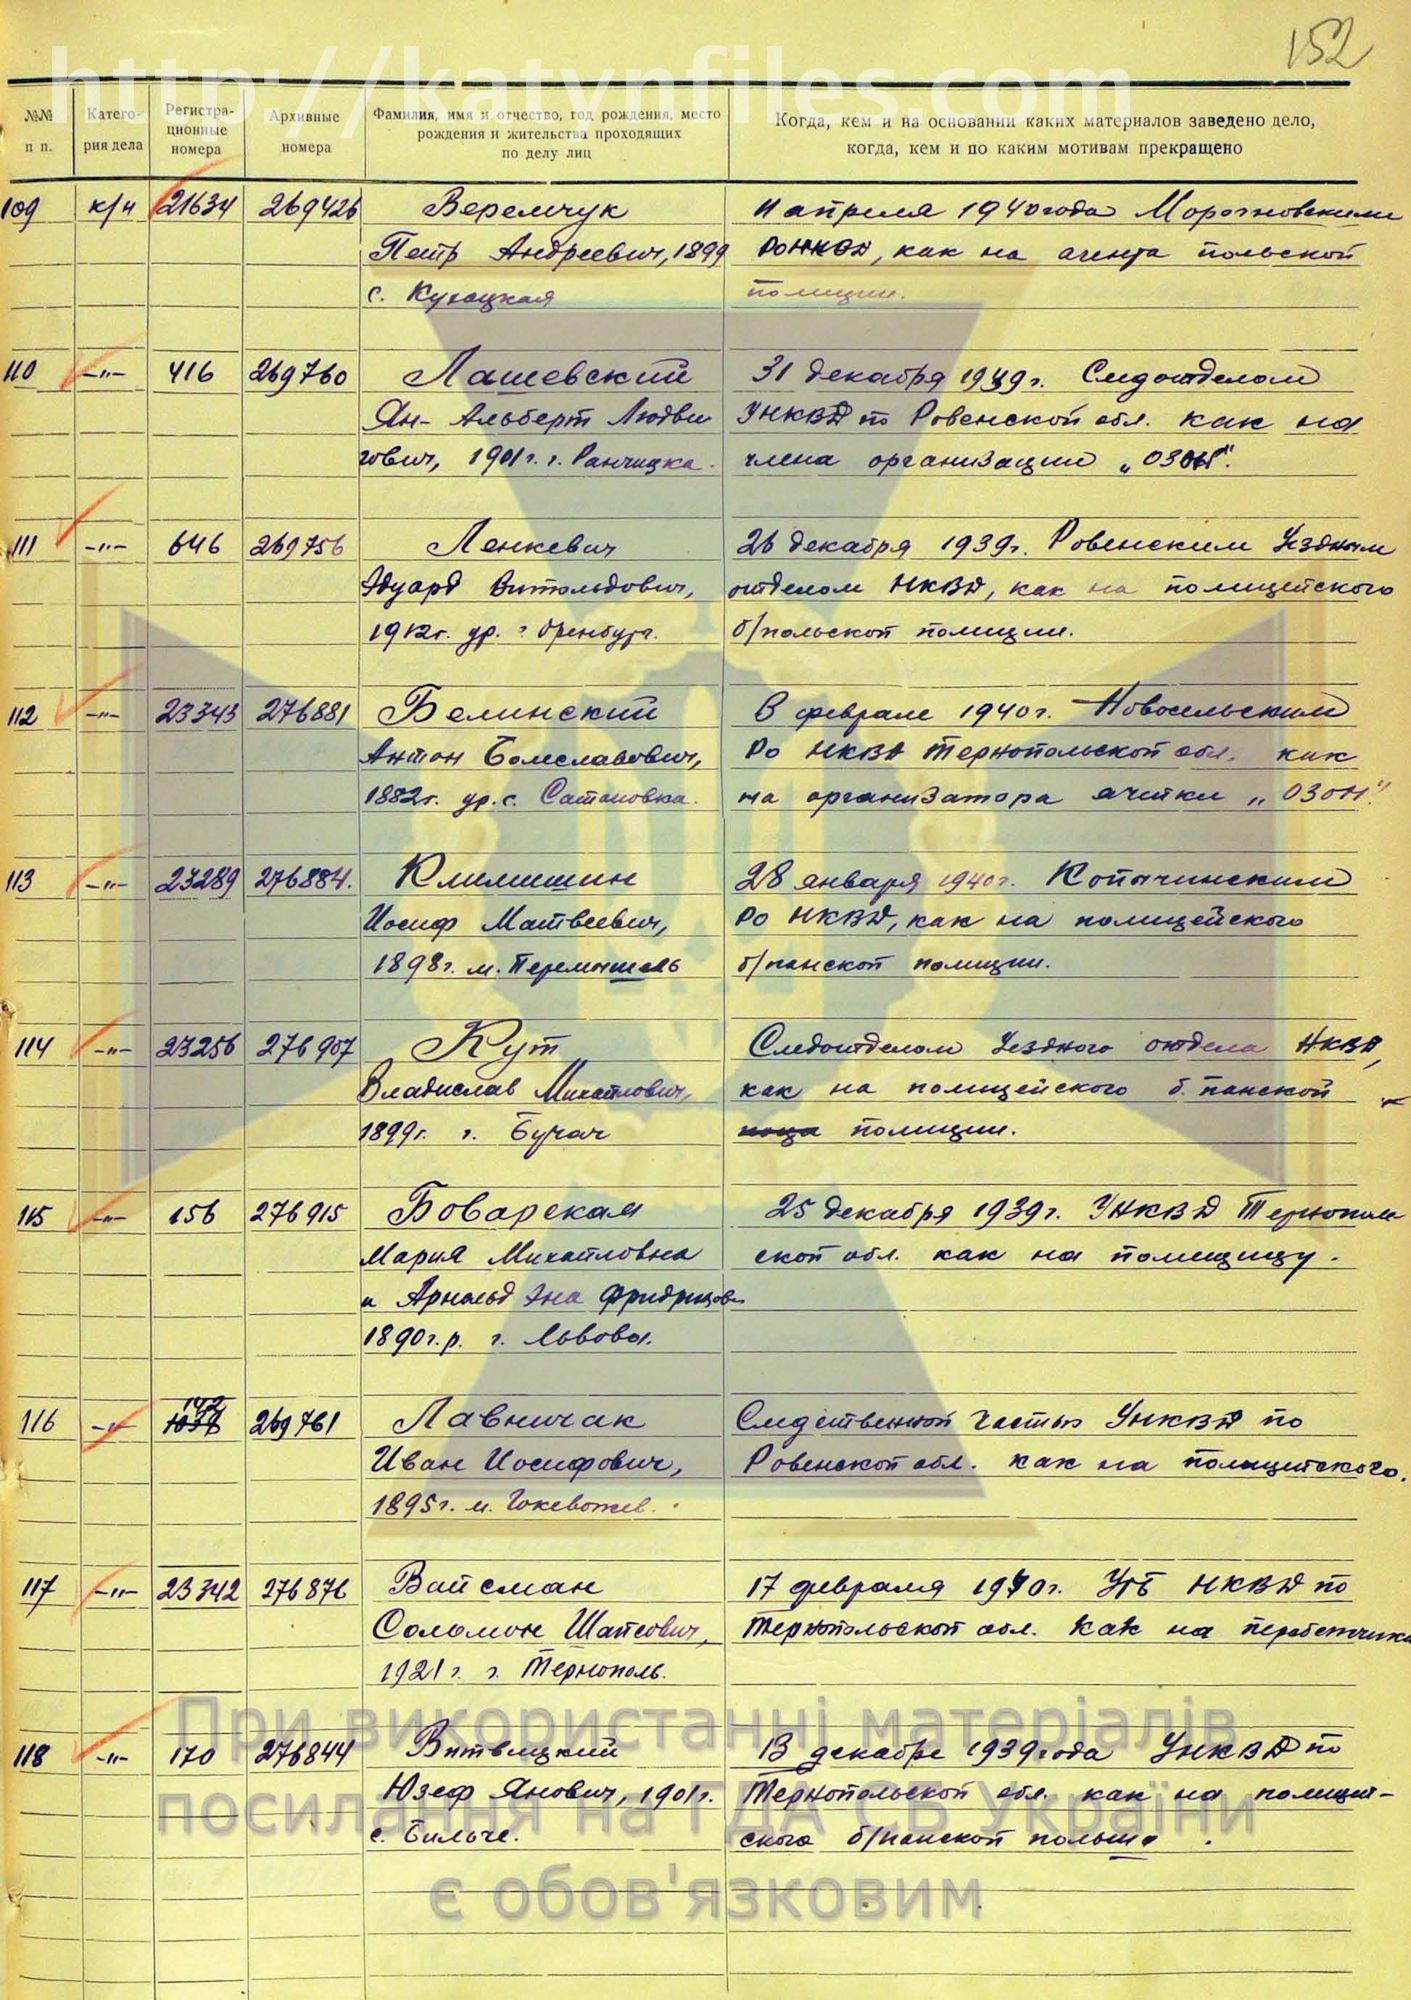 152
http://katynfiles.com
№№ п п.
Катего-
рия дела
Регистра-
ционные
номера
Архивные
номера
Фамилия, имя и отчество, год рождения, место
рождения и жительства проходящих
по делу лиц
Когда, кем и на основании каких материалов заведено дело,
когда, кем и по каким мотивам прекращено
109 к/ч 21634 269426 Веремчук 11 апреля 1940 года Морочновскими
Петр Андреевич, 1899 РОНКВД, как на агента польской
с. Кухоцкая полиции.
110 -"- 416 269760 Лашевский 31 декабря 1939г. Следотделом
Ян- Альберт Людви УНКВД по Ровенской обл. как на
гович, 1901г. г. члена организации „ОЗОН".
111 -"- 646 269756 Ленкевич 26 декабря 1939г. Ровенским Уездным
Эдуард Витольдович, отделом НКВД, как на полицейского
1912г. ур. г Оренбург. б/польской полиции.
112 -"- 23343 276881 Белинский В феврале 1940г. Новосельским
Антон Болеславович, РО НКВД Тернопольской обл. как
1882г. ур. с. Сатановка. на организатора ячейки „ОЗОН."
113 -"- 23289 276884. Климишин 28 января 1940г. Копычинским
Иосиф Матвеевич, РО НКВД, как на полицейского
1898г. м. Перемышель б/панской полиции.
114 -"- 23256 276907 Кут Следотделом Уездного отдела НКВД,
Владислав Михайлович, как на полицейского б. панской
1899г. г. Бучач полиции.
115 -"- 156 276915 Боварская 25 декабря 1939г. УНКВД Тернополь
Мария Михайловна ской обл. как на помещицу.
и Арнольд Эна Фридрихов
1890г.р. г. Львова.
116 -"- 142 269761 Лавничак Следственной частью УНКВД по
Иван Иосифович, Ровенской обл. как на полицейского.
1895г. м.
117 -"- 23342 276876 Вайсман 17 февраля 1940г. УГБ НКВД по
Соломон Шапсович, Тернопольской обл. как на перебежчика
1921г. г. Тернополь.
118 -"- 170 276844 Витвицкий 13 декабре 1939 года УНКВД по
Юзеф Янович, 1901г. Тернопольской обл. как на полицей-
с. Бильче. ского б/панской польши.
При використанні матеріалів
посилання на ГДА СБ України
є обов'язковим